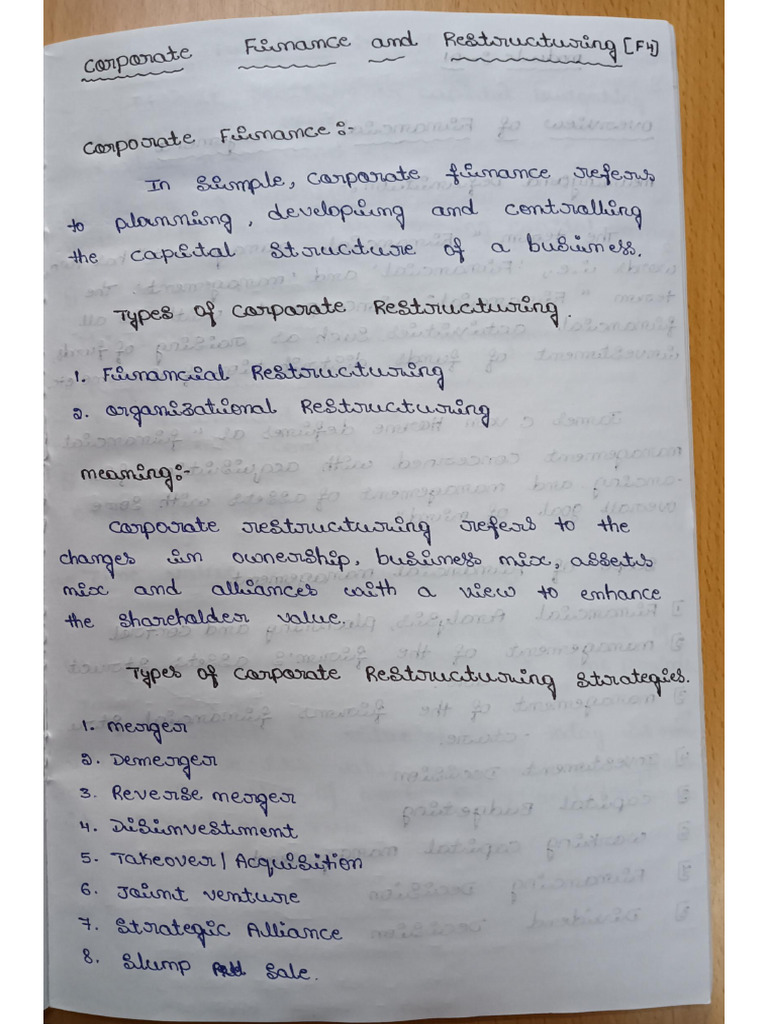 Corporate Finance and Restructuring [F4]
Corporate Finance :-
In simple, corporate finance refers
to planning, developing and controlling
the capital structure of a business.
Types of Corporate Restructuring.
1. Financial Restructuring
2. Organisational Restructuring
meaning:-
Corporate restructuring refers to the
changes in ownership, business mix, assets
mix and alliances with a view to enhance
the shareholder value.
Types of Corporate Restructuring Strategies.
1. Merger
2. Demerger
3. Reverse merger
4. Disinvestment
5. Takeover / Acquisition
6. Joint venture
7. Strategic Alliance
8. Slump Sale.